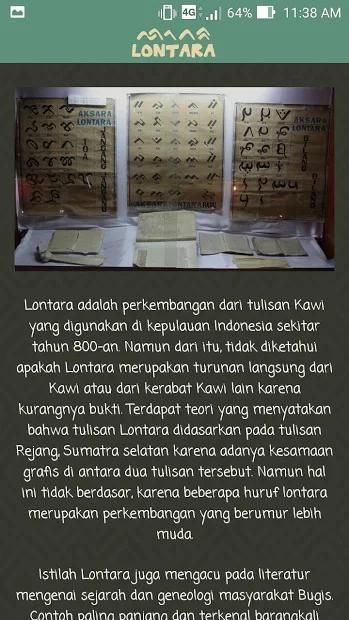 4G 64% 11:38 AM
LONTARA
AKSARA
LONTARA
AKSARA LONTARA
AKSARA
LONTARA
Lontara adalah perkembangan dari tulisan Kawi
yang digunakan di kepulauan Indonesia sekitar
tahun 800-an. Namun dari itu, tidak diketahui
apakah Lontara merupakan turunan langsung dari
Kawi atau dari kerabat Kawi lain karena
kurangnya bukti. Terdapat teori yang menyatakan
bahwa tulisan Lontara didasarkan pada tulisan
Rejang, Sumatra selatan karena adanya kesamaan
grafis di antara dua tulisan tersebut. Namun hal
ini tidak berdasar, karena beberapa huruf lontara
merupakan perkembangan yang berumur lebih
muda.
Istilah Lontara juga mengacu pada literatur
mengenai sejarah dan geneologi masyarakat Bugis.
Contoh paling panjang dan terkenal barangkali